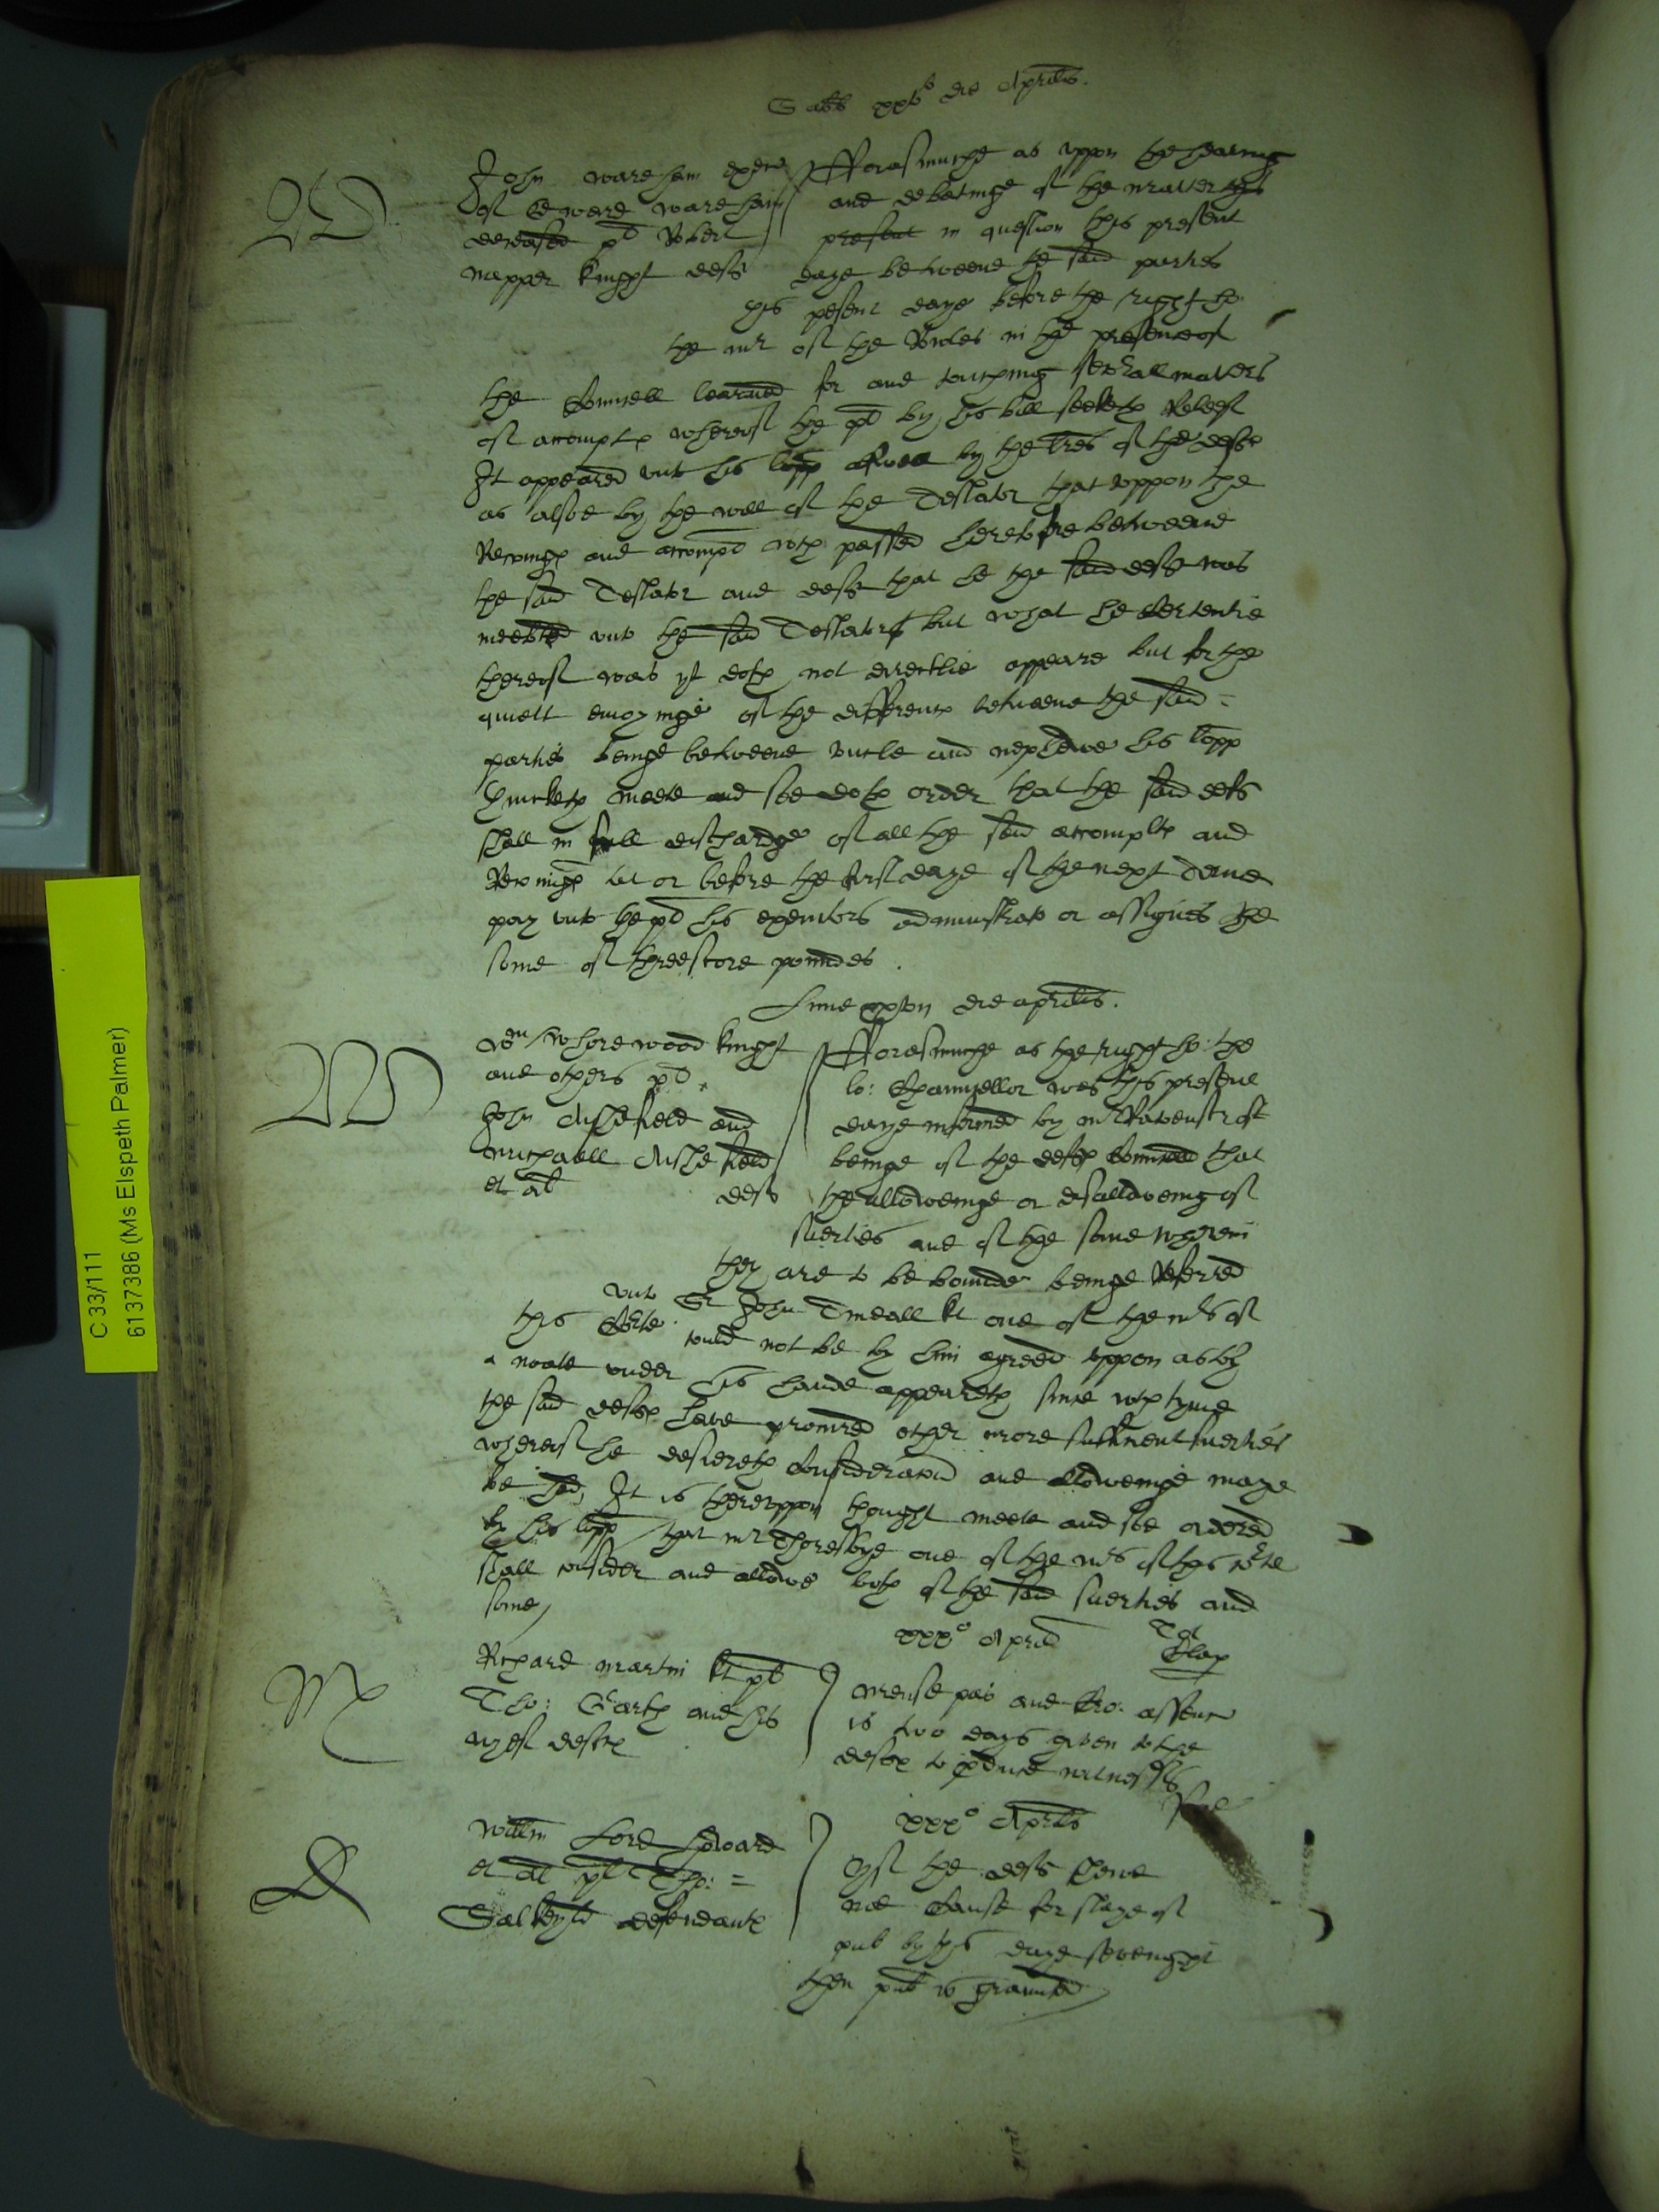 Sabb xxvo die Aprilis.
W
John Wareham exec
of Edward Wareham
deceased pl Robert
Napper knight deft
Fforasmuche as uppon the hearing
and debatinge of the matter this
present in question this present
daye betweene the said parties
this present daye before the right ho:
the mr of the Rowles in the presence of
the Councell learned for and touching severall matters
of accompte whereof the pl by his bill seeketh Releef
It appeared unto his lopp aswell by the lres of the deftes
as alsoe by the will of the Testator that uppon the
Reconinge and accompt wch passed heretofore betweene
the said Testator and deft that he the said deft was
indebted unto the said Testator but what the certentie
thereof was yt doth not directlie appeare but for the
quiett endinge of the difference betweene the said =
parties beinge betweene uncle and nephewe his lopp
thinketh meete and soe doth order that the said deft
shall in full dischardge of all the said accompte and
Reconinge at or before the first daye of the next Terme
pay unto the pl his executors administrators or assignes the
some of threescore poundes .
Lune xxvii die aprilis .
W
Wm Whorewood knight
and others pl
John Ashefield and
Michaell Ashefield
et al deft
Fforasmuche as the right ho: the
lo: Chauncellor was this present
daye informed by mr Ravenscroft
beinge of the deftes Councell that
the alloweinge or disalloweing of
suerties and of the some wherein
they are to be bounde beinge Referred
unto Sr John Tindall kt one of the mrs of
this Corte could not be by him agreed uppon as by
a noate under his hande appeareth since wch tyme
the said deftes have procured other more sufficient suerties
whereof he desiereth Consideracon and alloweinge maye
be had, It is thereuppon thought meete and soe ordered
by his lopp that mr Thoresbye one of the mrs of this corte
shall consider and allowe both of the said suerties and
some
xxxo April
M
Richard Martin kt pl
Tho: Garth and his
wyef deftes
mense pas and Cro: assent
is two days given to the
deftes to pduce witnesses
xxxo Aprilis
H
Willm Lord Howard
et al pl Tho: =
Salkeyld defendante
Yf the deft shewe
noe Cause for staye of
pub by this daye sevenight
then pub is graunted
C 33/111
6137386 (Ms Elspeth Palmer)